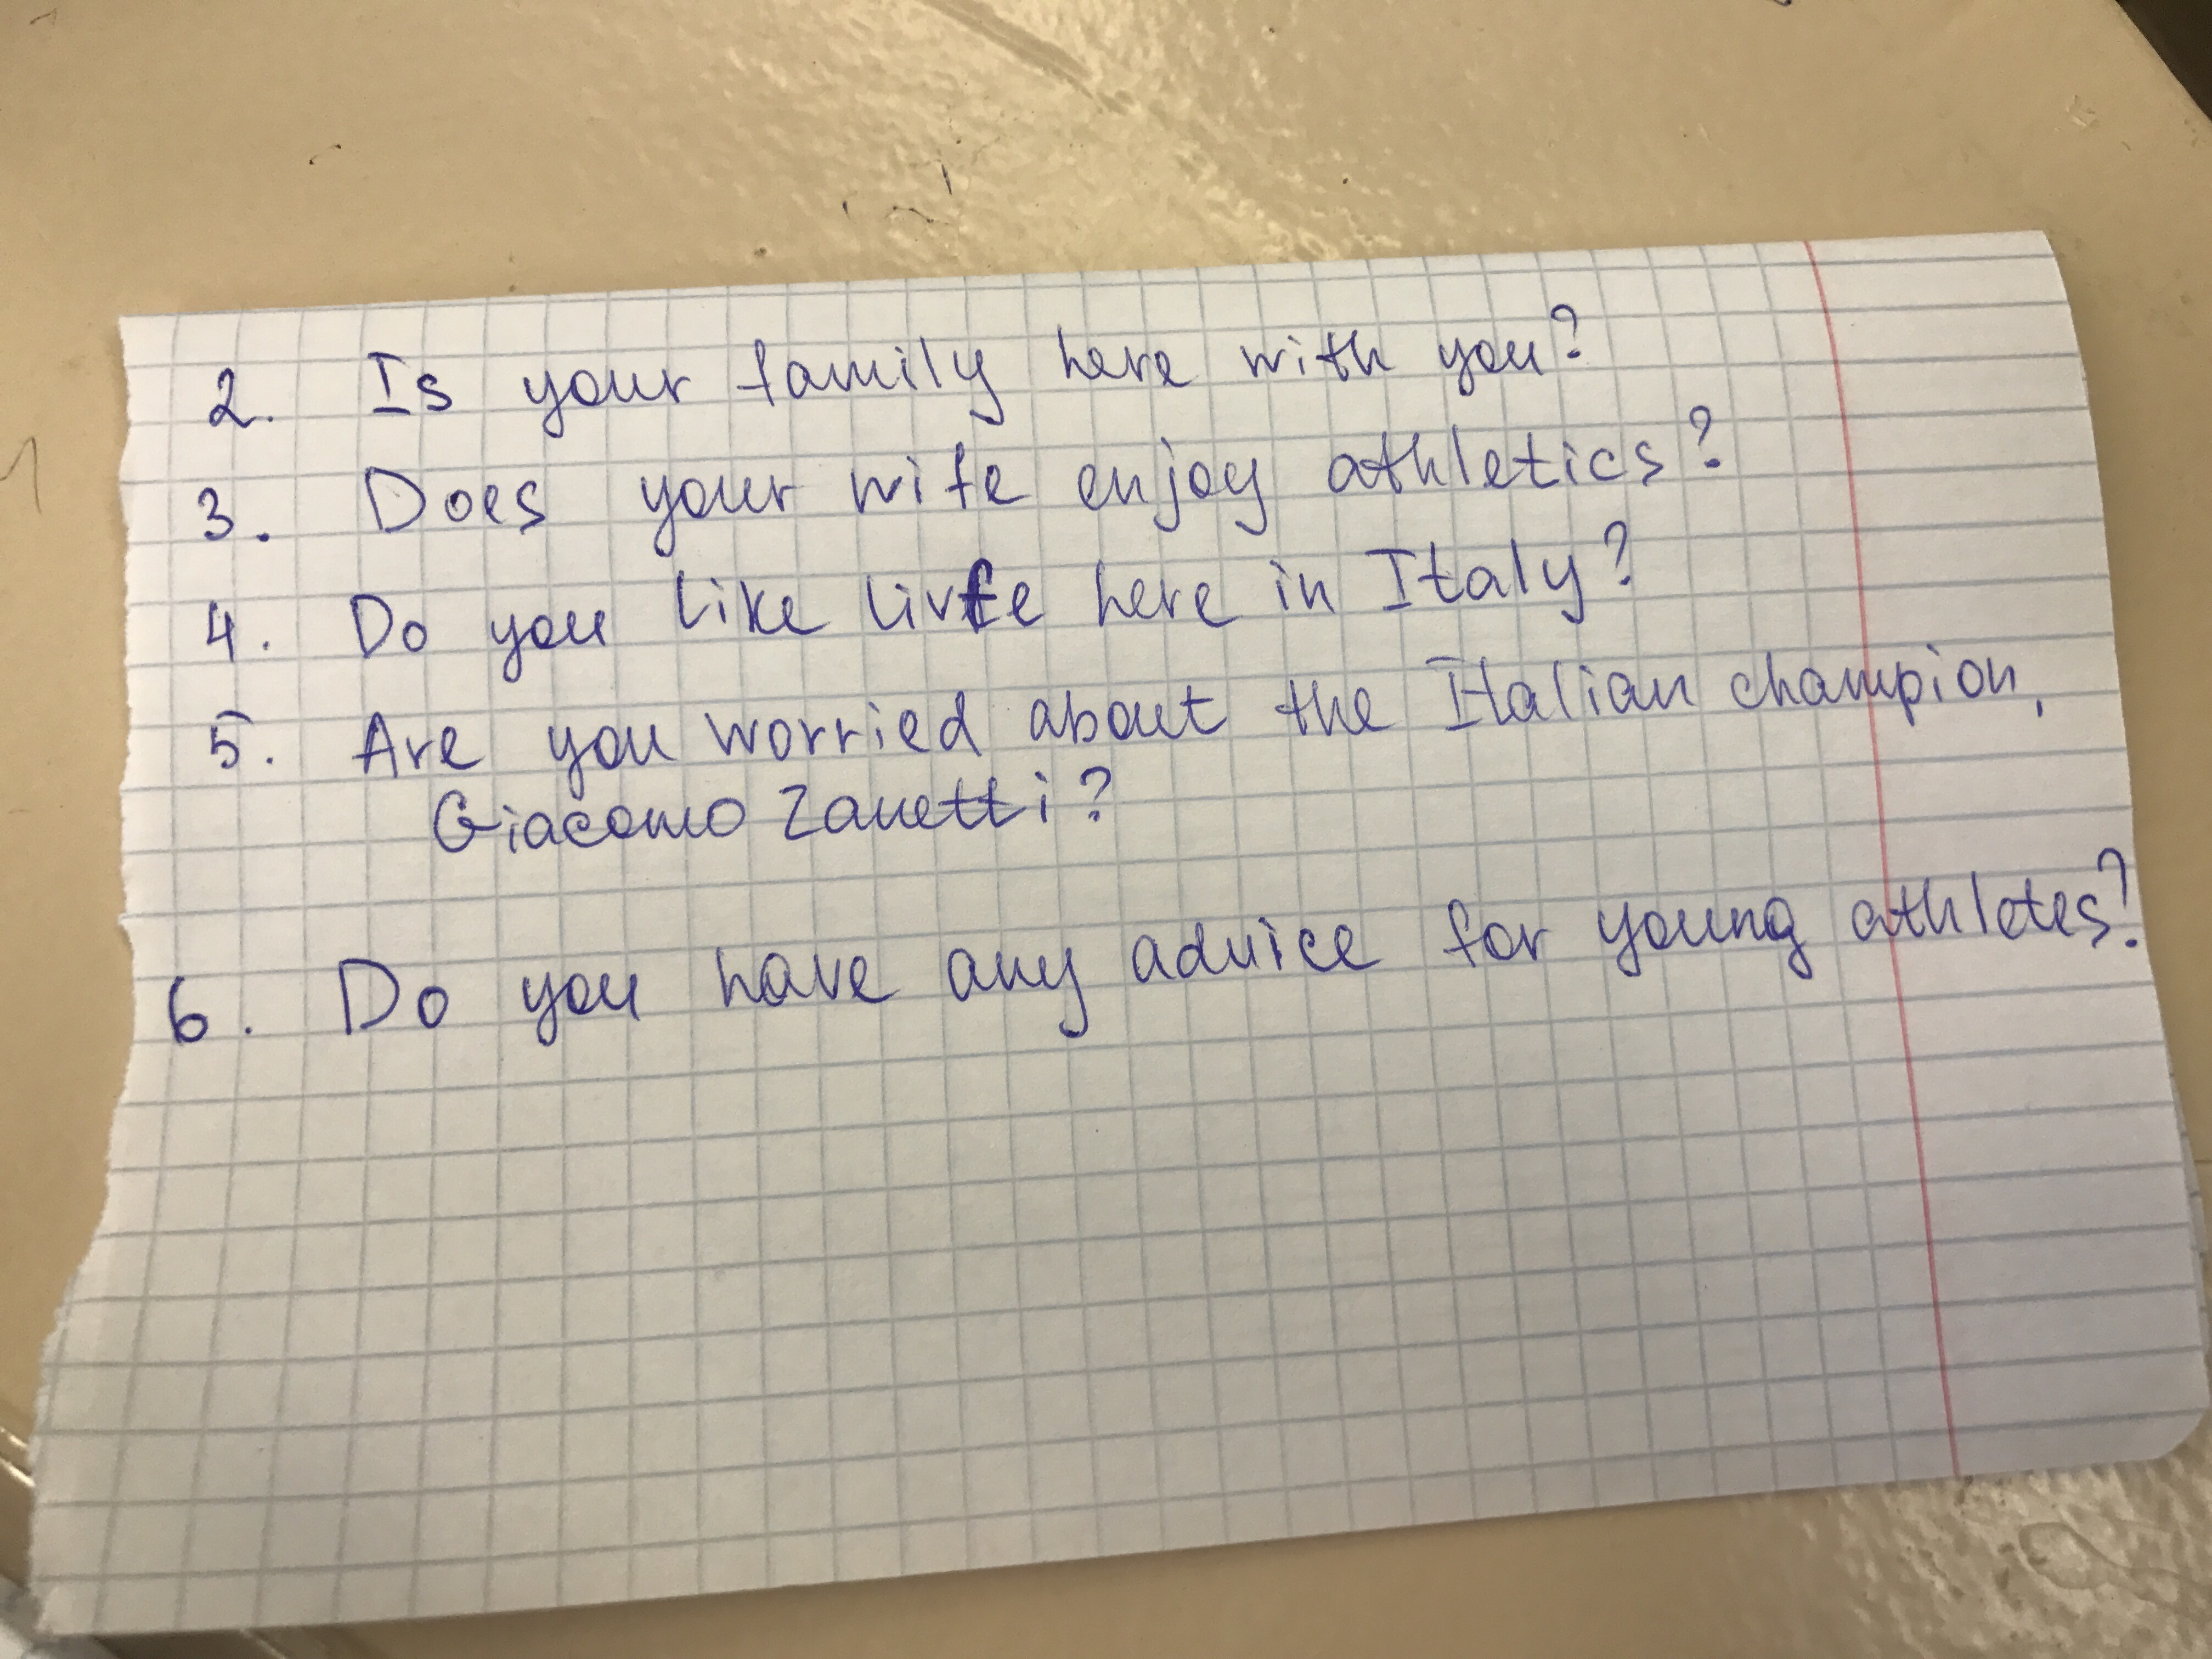 2. Is your family here with you?
3. Does your wife enjoy athletics?
4. Do you like life here in Italy?
5. Are you worried about the Italian champion,
Giacomo Zanetti?
6. Do you have any advice for young athletes?